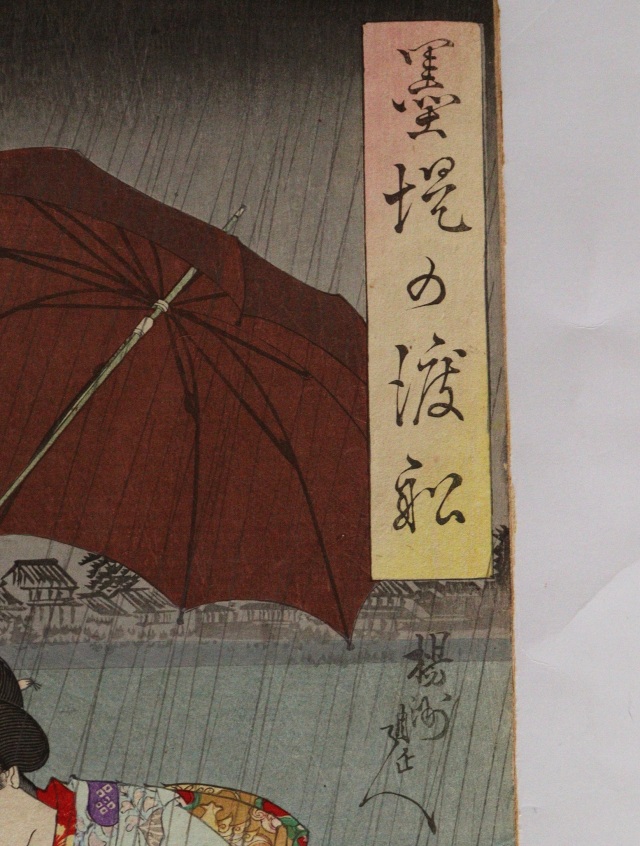 墨堤の渡船
楊洲周延